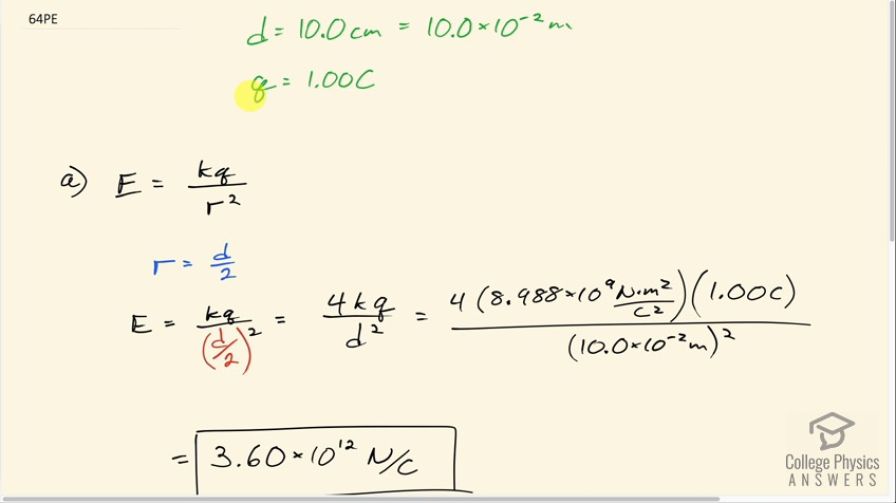 64PE
d = 10.0 cm = 10.0 × 10⁻² m
q = 1.00 C
a) E = kq / r²
r = d/2
E = kq / (d/2)² = 4kq / d² = 4 (8.988 × 10⁹ N·m²/C²)(1.00 C) / (10.0 × 10⁻² m)²
= 3.60 × 10¹² N/C
College Physics
ANSWERS